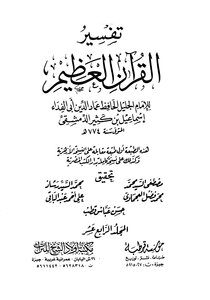 تفسير
القرآن العظيم
للإمام الجليل الحافظ عماد الدين أبي الفداء
إسماعيل بن كثير الدمشقي
المتوفى سنة ٧٧٤ هـ
تحقيق
مصطفى السيد محمد
محمد السيد رشاد
محمد فضل العجماوي
على أحمد عبد الباقي
حسن عباس قطب
المجلد الرابع عشر
مؤسسة قرطبة
مكتبة أولاد الشيخ للتراث